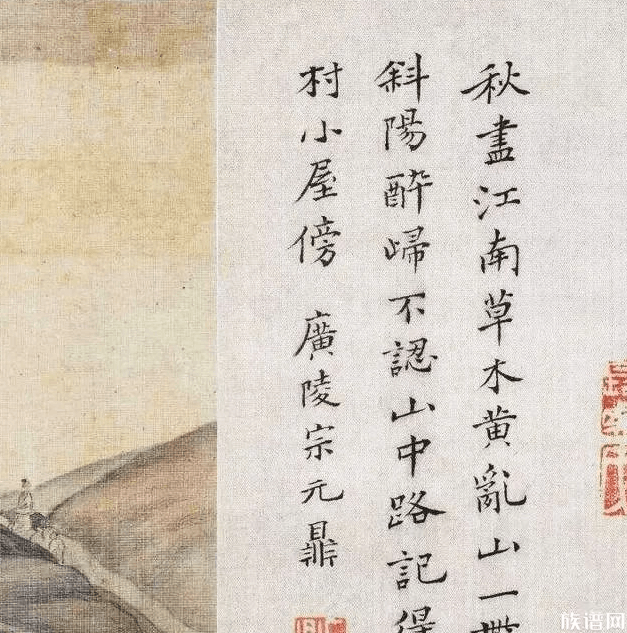 秋盡江南草木黄亂山一
斜陽醉歸不認山中路記得
村小屋傍 廣陵宗元鼎
族谱网